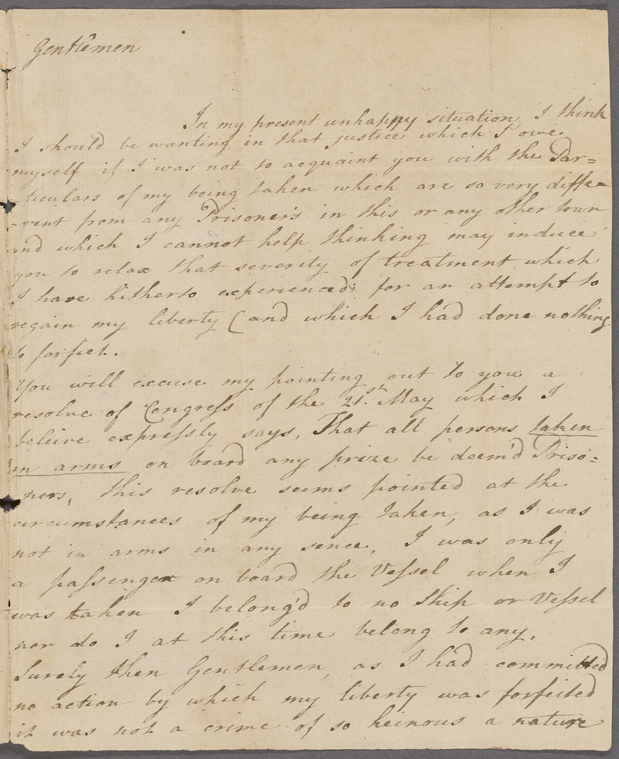 Gentlemen
In my present unhappy situation, I think
I should be wanting in that justice which I owe
myself if I was not to acquaint you with the Par=
ticulars of my being taken which are so very diffe=
-rent from any Prisoner's in this or any other town
and which I cannot help thinking may induce
you to relax that severity of treatment which
I have hitherto experienced; for an attempt to
regain my liberty (and which I had done nothing
to forfiet.
You will excuse my pointing out to you a
resolve of Congress of the 21.st May which I
beleive expressly says, That all persons taken
in arms on board any prize be deem'd Priso=
ners, this resolve seems pointed at the
circumstances of my being taken, as I was
not in arms in any sence, I was only
a passenger on board the Vessel when I
was taken I belong'd to no Ship or Vessel
nor do I at this time belong to any.
Surely then Gentlemen, as I had committed
no action by which my liberty was forfeited
it was not a crime of so heinous a nature